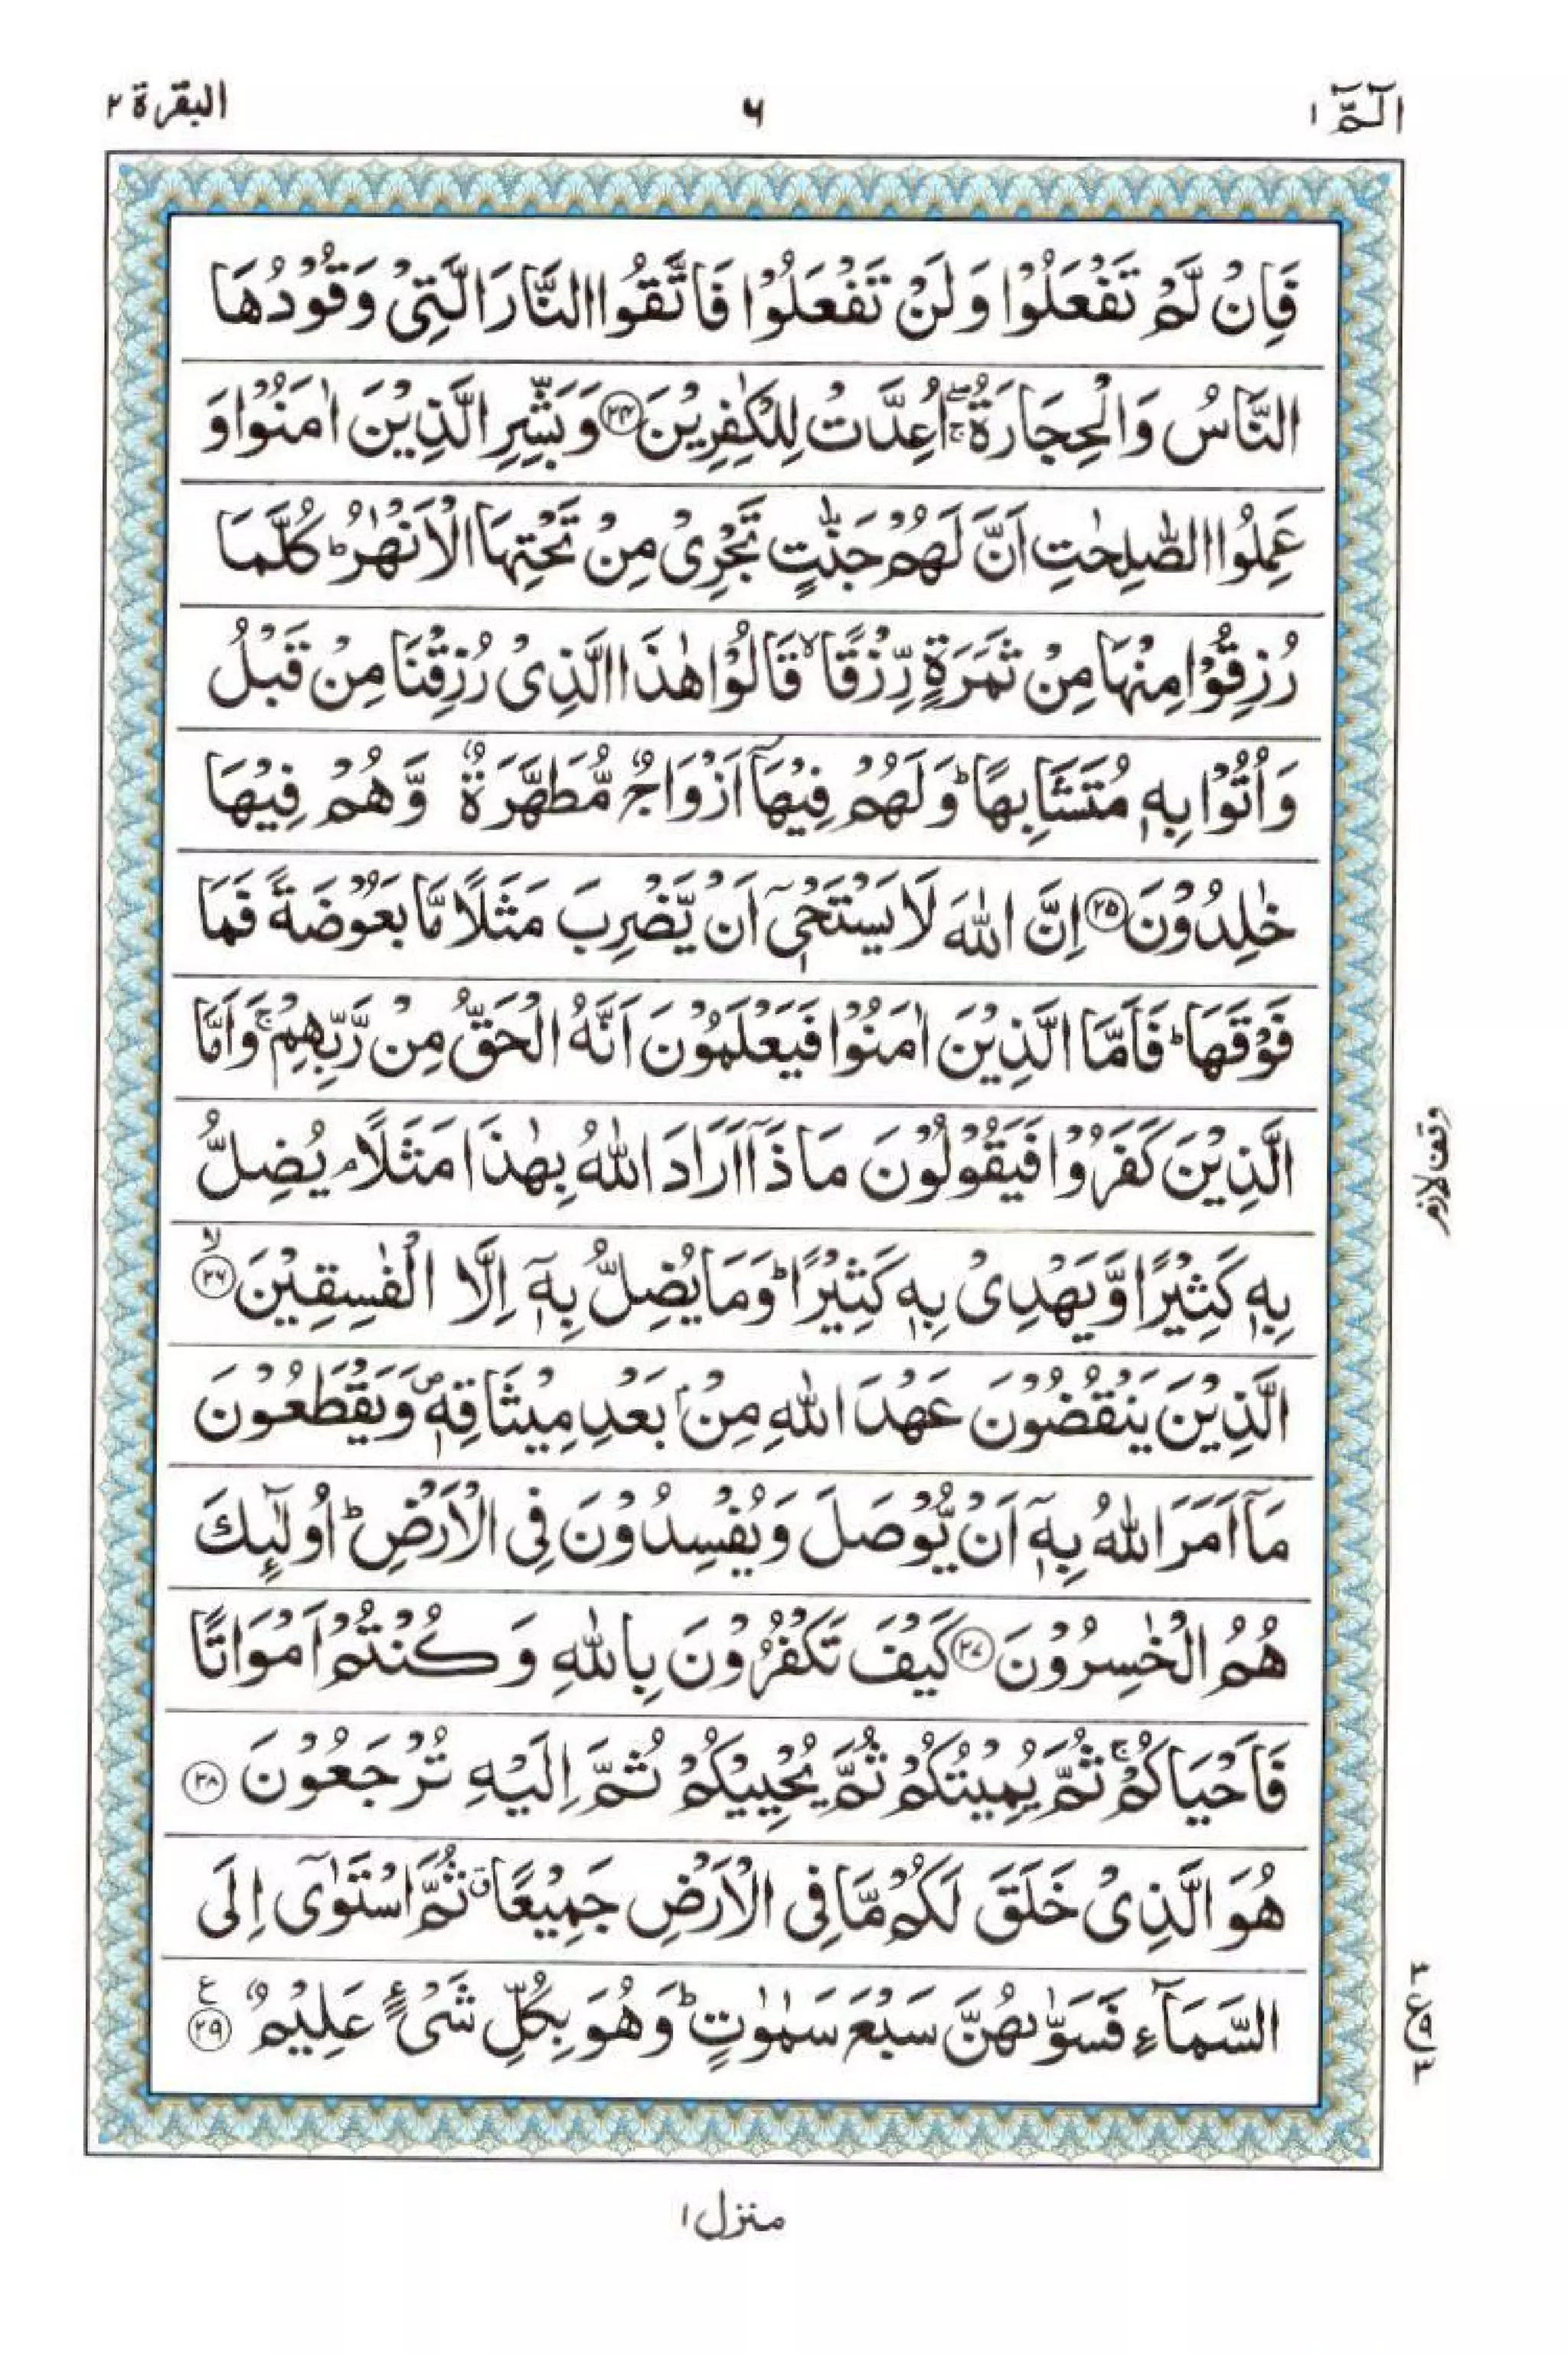 الٓمّٓ ١
٦
البقرة ٢
فَاِنْ لَّمْ تَفْعَلُوْا وَلَنْ تَفْعَلُوْا فَاتَّقُوا النَّارَ الَّتِیْ وَقُوْدُهَا
النَّاسُ وَالْحِجَارَةُ ۖۚ اُعِدَّتْ لِلْكٰفِرِیْنَ ﴿٢٤﴾ وَبَشِّرِ الَّذِیْنَ اٰمَنُوْا وَ
عَمِلُوا الصّٰلِحٰتِ اَنَّ لَهُمْ جَنّٰتٍ تَجْرِیْ مِنْ تَحْتِهَا الْاَنْهٰرُ ؕ كُلَّمَا
رُزِقُوْا مِنْهَا مِنْ ثَمَرَةٍ رِّزْقًا ۙ قَالُوْا هٰذَا الَّذِیْ رُزِقْنَا مِنْ قَبْلُ
وَاُتُوْا بِهٖ مُتَشَابِهًا ؕ وَلَهُمْ فِیْهَاۤ اَزْوَاجٌ مُّطَهَّرَةٌ وَّهُمْ فِیْهَا
خٰلِدُوْنَ ﴿٢٥﴾ اِنَّ اللّٰهَ لَا یَسْتَحْیٖۤ اَنْ یَّضْرِبَ مَثَلًا مَّا بَعُوْضَةً فَمَا
فَوْقَهَا ؕ فَاَمَّا الَّذِیْنَ اٰمَنُوْا فَیَعْلَمُوْنَ اَنَّهُ الْحَقُّ مِنْ رَّبِّهِمْ ۚ وَاَمَّا
الَّذِیْنَ كَفَرُوْا فَیَقُوْلُوْنَ مَاذَاۤ اَرَادَ اللّٰهُ بِهٰذَا مَثَلًا ۘ یُضِلُّ
بِهٖ كَثِیْرًا وَّیَهْدِیْ بِهٖ كَثِیْرًا ؕ وَمَا یُضِلُّ بِهٖۤ اِلَّا الْفٰسِقِیْنَ ۙ﴿٢٦﴾
الَّذِیْنَ یَنْقُضُوْنَ عَهْدَ اللّٰهِ مِنْۢ بَعْدِ مِیْثَاقِهٖ ۪ وَیَقْطَعُوْنَ
مَاۤ اَمَرَ اللّٰهُ بِهٖۤ اَنْ یُّوْصَلَ وَیُفْسِدُوْنَ فِی الْاَرْضِ ؕ اُولٰٓئِكَ
هُمُ الْخٰسِرُوْنَ ﴿٢٧﴾ كَیْفَ تَكْفُرُوْنَ بِاللّٰهِ وَكُنْتُمْ اَمْوَاتًا
فَاَحْیَاكُمْ ۚ ثُمَّ یُمِیْتُكُمْ ثُمَّ یُحْیِیْكُمْ ثُمَّ اِلَیْهِ تُرْجَعُوْنَ ﴿٢٨﴾
هُوَ الَّذِیْ خَلَقَ لَكُمْ مَّا فِی الْاَرْضِ جَمِیْعًا ۗ ثُمَّ اسْتَوٰۤی اِلَی
السَّمَآءِ فَسَوّٰىهُنَّ سَبْعَ سَمٰوٰتٍ ؕ وَهُوَ بِكُلِّ شَیْءٍ عَلِیْمٌ ﴿٢٩﴾ ع
وقف لازم
٣ ع ٩ ٣
منزل ١